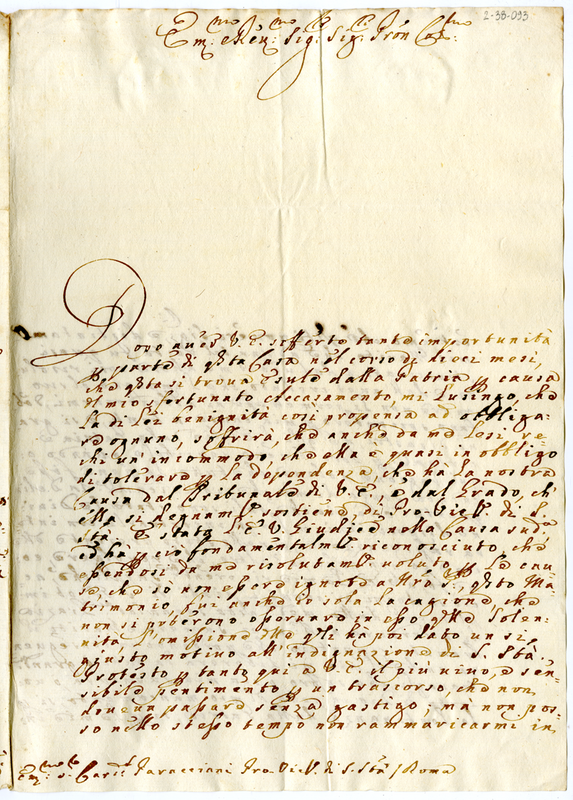 2-33-093
Em.mo e Reu.mo Sig.r Sig.r Pron Col.mo
Dopo auer V. E. sofferto tante importunità
p parte di q̃sta Casa nel corso di dieci mesi,
che q̃sta si troua esule dalla Patria p causa
del mio sfortunato Accasamento, mi lusingo, che
la di Lei benignità così propensa ad obbliga-
re ognuno, soffrirà, che anche da me Le si re-
chi un' incommodo, che ella è quasi in obbligo
di tolerare p la dependenza, che hà la nostra
Causa dal Tribunale di V. E., e dal Grado, ch'
ella si degnam.te sostiene di Pro-Vic.o di S.
Stà. È stata l' E. V. Giudice nella Causa sud.a
ed ha p ciò fondamentalm.te riconosciuto, che
essendosi da me risolutam.te voluto p le cau
se, che sò non essere ignote a Nro S.re q̃sto Ma
trimonio, fui anche io sola la cagione che
non si poterono osseruare in esso q̃lle Solen-
nità l' omissione delle q̃li ha poi dato un sì
giusto motiuo all' indignazione di S. Stà.
Protesto p tanto qui a V. E. il più uiuo, e sen-
sibile pentimento p un trascorso, che non
deue un passare senza gastigo; ma non pos-
so nello stesso tempo non rammaricarmi in
Em.mo S. Card.l Paracciani Pro-Vic.o di S. Stà / Roma